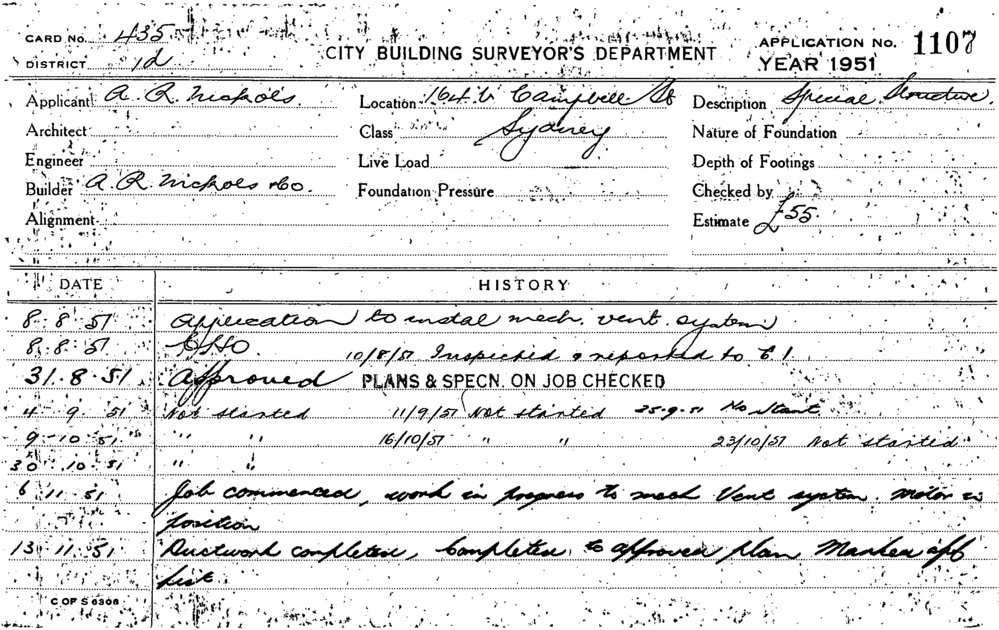 CARD No. 435
DISTRICT 1d
CITY BUILDING SURVEYOR'S DEPARTMENT
APPLICATION No. 1107
YEAR 1951
Applicant A. R. Nichols. Location 164 Campbell St Description Special Structure.
Architect Class Sydney Nature of Foundation
Engineer Live Load Depth of Footings
Builder A. R. Nichols & Co. Foundation Pressure Checked by
Alignment Estimate £55.
DATE HISTORY
8-8-51 Application to instal mech. vent. system
8.8.51 10/8/51 Inspected & reported to
31.8.51 Approved PLANS & SPECN. ON JOB CHECKED
4.9.51 Not started 11/9/51 Not started 25-9-51 No start
9-10-51 " " 16/10/51 " " 23/10/51 Not started
30.10.51 " "
6.11.51 Job commenced, work in progress to mech Vent system. motor in
position
13.11.51 Ductwork completed, Completed to approved plan Marked off
list
C OF S 6306